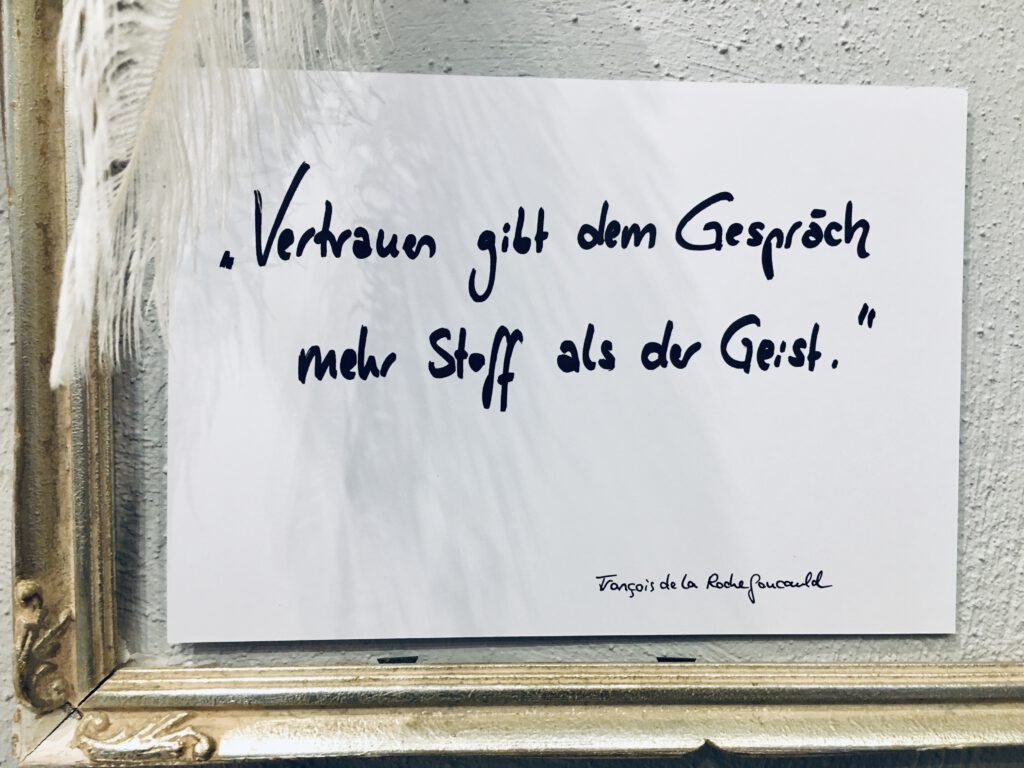 „Vertrauen gibt dem Gespräch
mehr Stoff als der Geist."
François de la Rochefoucauld